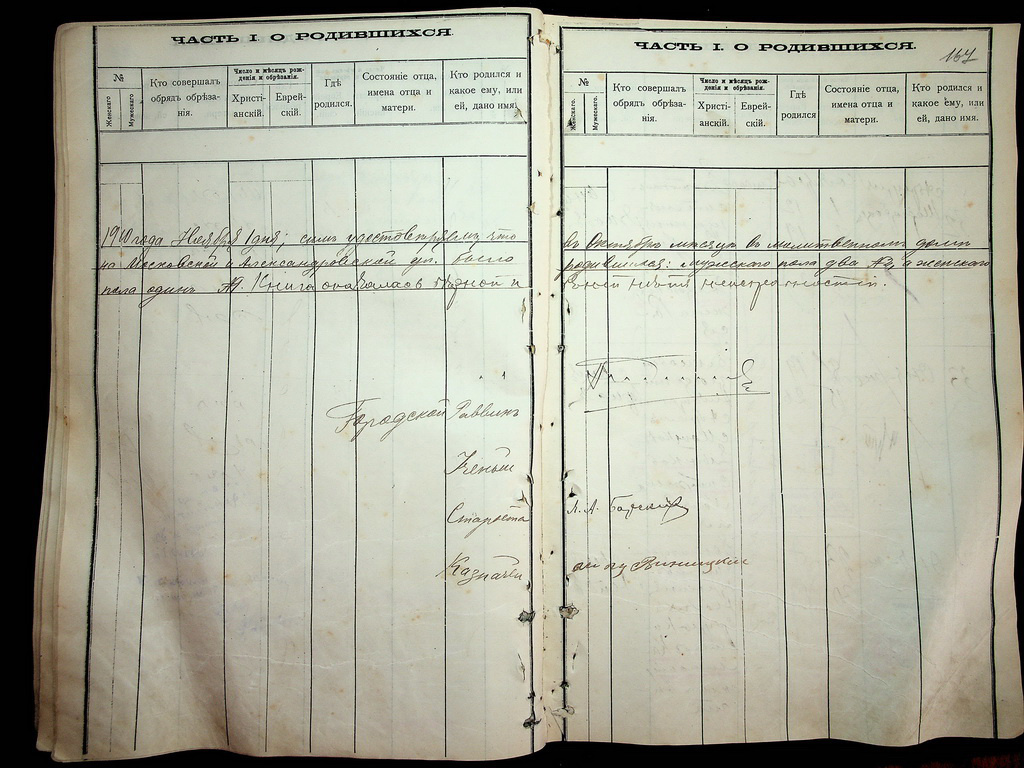 ЧАСТЬ I. О РОДИВШИХСЯ.
№
Женскаго.
Мужескаго.
Кто совершалъ обрядъ обрѣзанія.
Число и мѣсяц рожденія и обрѣзанія.
Христіанскій.
Еврейскій.
Гдѣ родился.
Состояніе отца, имена отца и матери.
Кто родился и какое ему, или ей, дано имя.
1910 года Ноября 1 дня; симъ удостовѣряемъ что
на Московской и Александровской ул. было
пола одинъ Книга оказалась
Городской Раввинъ
Староста
Казначей
ЧАСТЬ I. О РОДИВШИХСЯ.
167
№
Женскаго.
Мужескаго.
Кто совершалъ обрядъ обрѣзанія.
Число и мѣсяц рожденія и обрѣзанія.
Христіанскій.
Еврейскій.
Гдѣ родился
Состояніе отца, имена отца и матери.
Кто родился и какое ему, или ей, дано имя.
въ Октябрѣ мѣсяцѣ въ молитвенномъ домѣ
родившихся: мужескаго пола два а женскаго
Л. А.
Виницкій